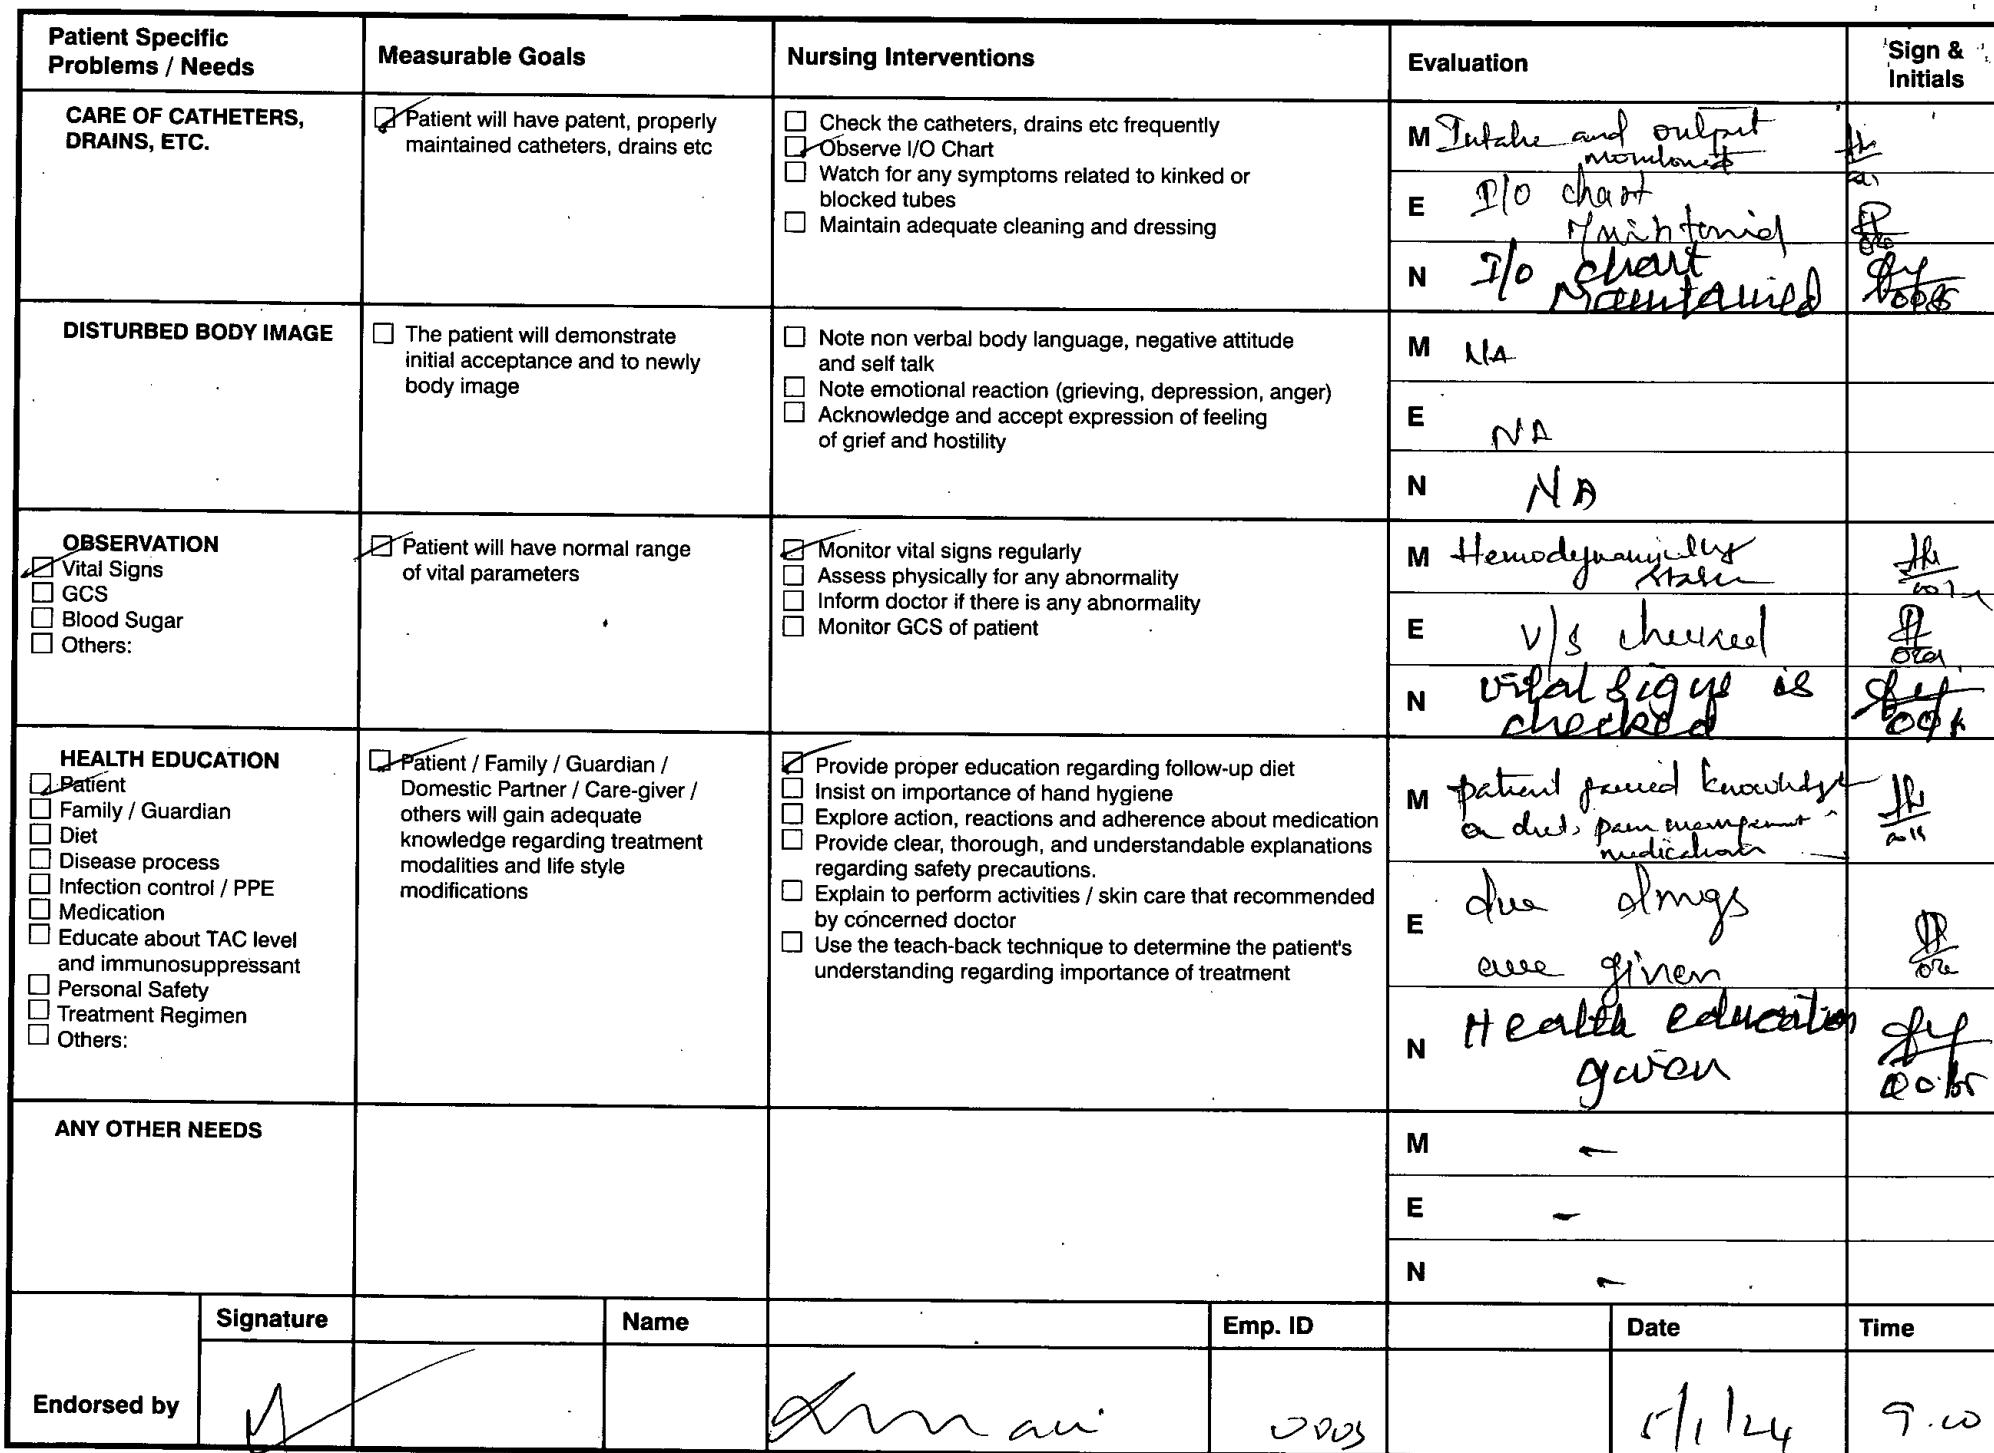 Patient Specific
Problems / Needs
Measurable Goals
Nursing Interventions
Evaluation
Sign &
Initials
CARE OF CATHETERS,
DRAINS, ETC.
Patient will have patent, properly
maintained catheters, drains etc
Check the catheters, drains etc frequently
Observe I/O Chart
Watch for any symptoms related to kinked or
blocked tubes
Maintain adequate cleaning and dressing
M Intake and output
E I/O chart
N I/O chart
Maintained
DISTURBED BODY IMAGE
The patient will demonstrate
initial acceptance and to newly
body image
Note non verbal body language, negative attitude
and self talk
Note emotional reaction (grieving, depression, anger)
Acknowledge and accept expression of feeling
of grief and hostility
M NA
E NA
N NA
OBSERVATION
Vital Signs
GCS
Blood Sugar
Others:
Patient will have normal range
of vital parameters
Monitor vital signs regularly
Assess physically for any abnormality
Inform doctor if there is any abnormality
Monitor GCS of patient
M Hemodynamically
E V/S checked
N vital signs is
checked
HEALTH EDUCATION
Patient
Family / Guardian
Diet
Disease process
Infection control / PPE
Medication
Educate about TAC level
and immunosuppressant
Personal Safety
Treatment Regimen
Others:
Patient / Family / Guardian /
Domestic Partner / Care-giver /
others will gain adequate
knowledge regarding treatment
modalities and life style
modifications
Provide proper education regarding follow-up diet
Insist on importance of hand hygiene
Explore action, reactions and adherence about medication
Provide clear, thorough, and understandable explanations
regarding safety precautions.
Explain to perform activities / skin care that recommended
by concerned doctor
Use the teach-back technique to determine the patient's
understanding regarding importance of treatment
M patient gained knowledge
on diet, pain
medication
E due drugs
given
N Health education
given
ANY OTHER NEEDS
M -
E -
N -
Endorsed by
Signature
Name
Emp. ID
Date
Time
5/1/24